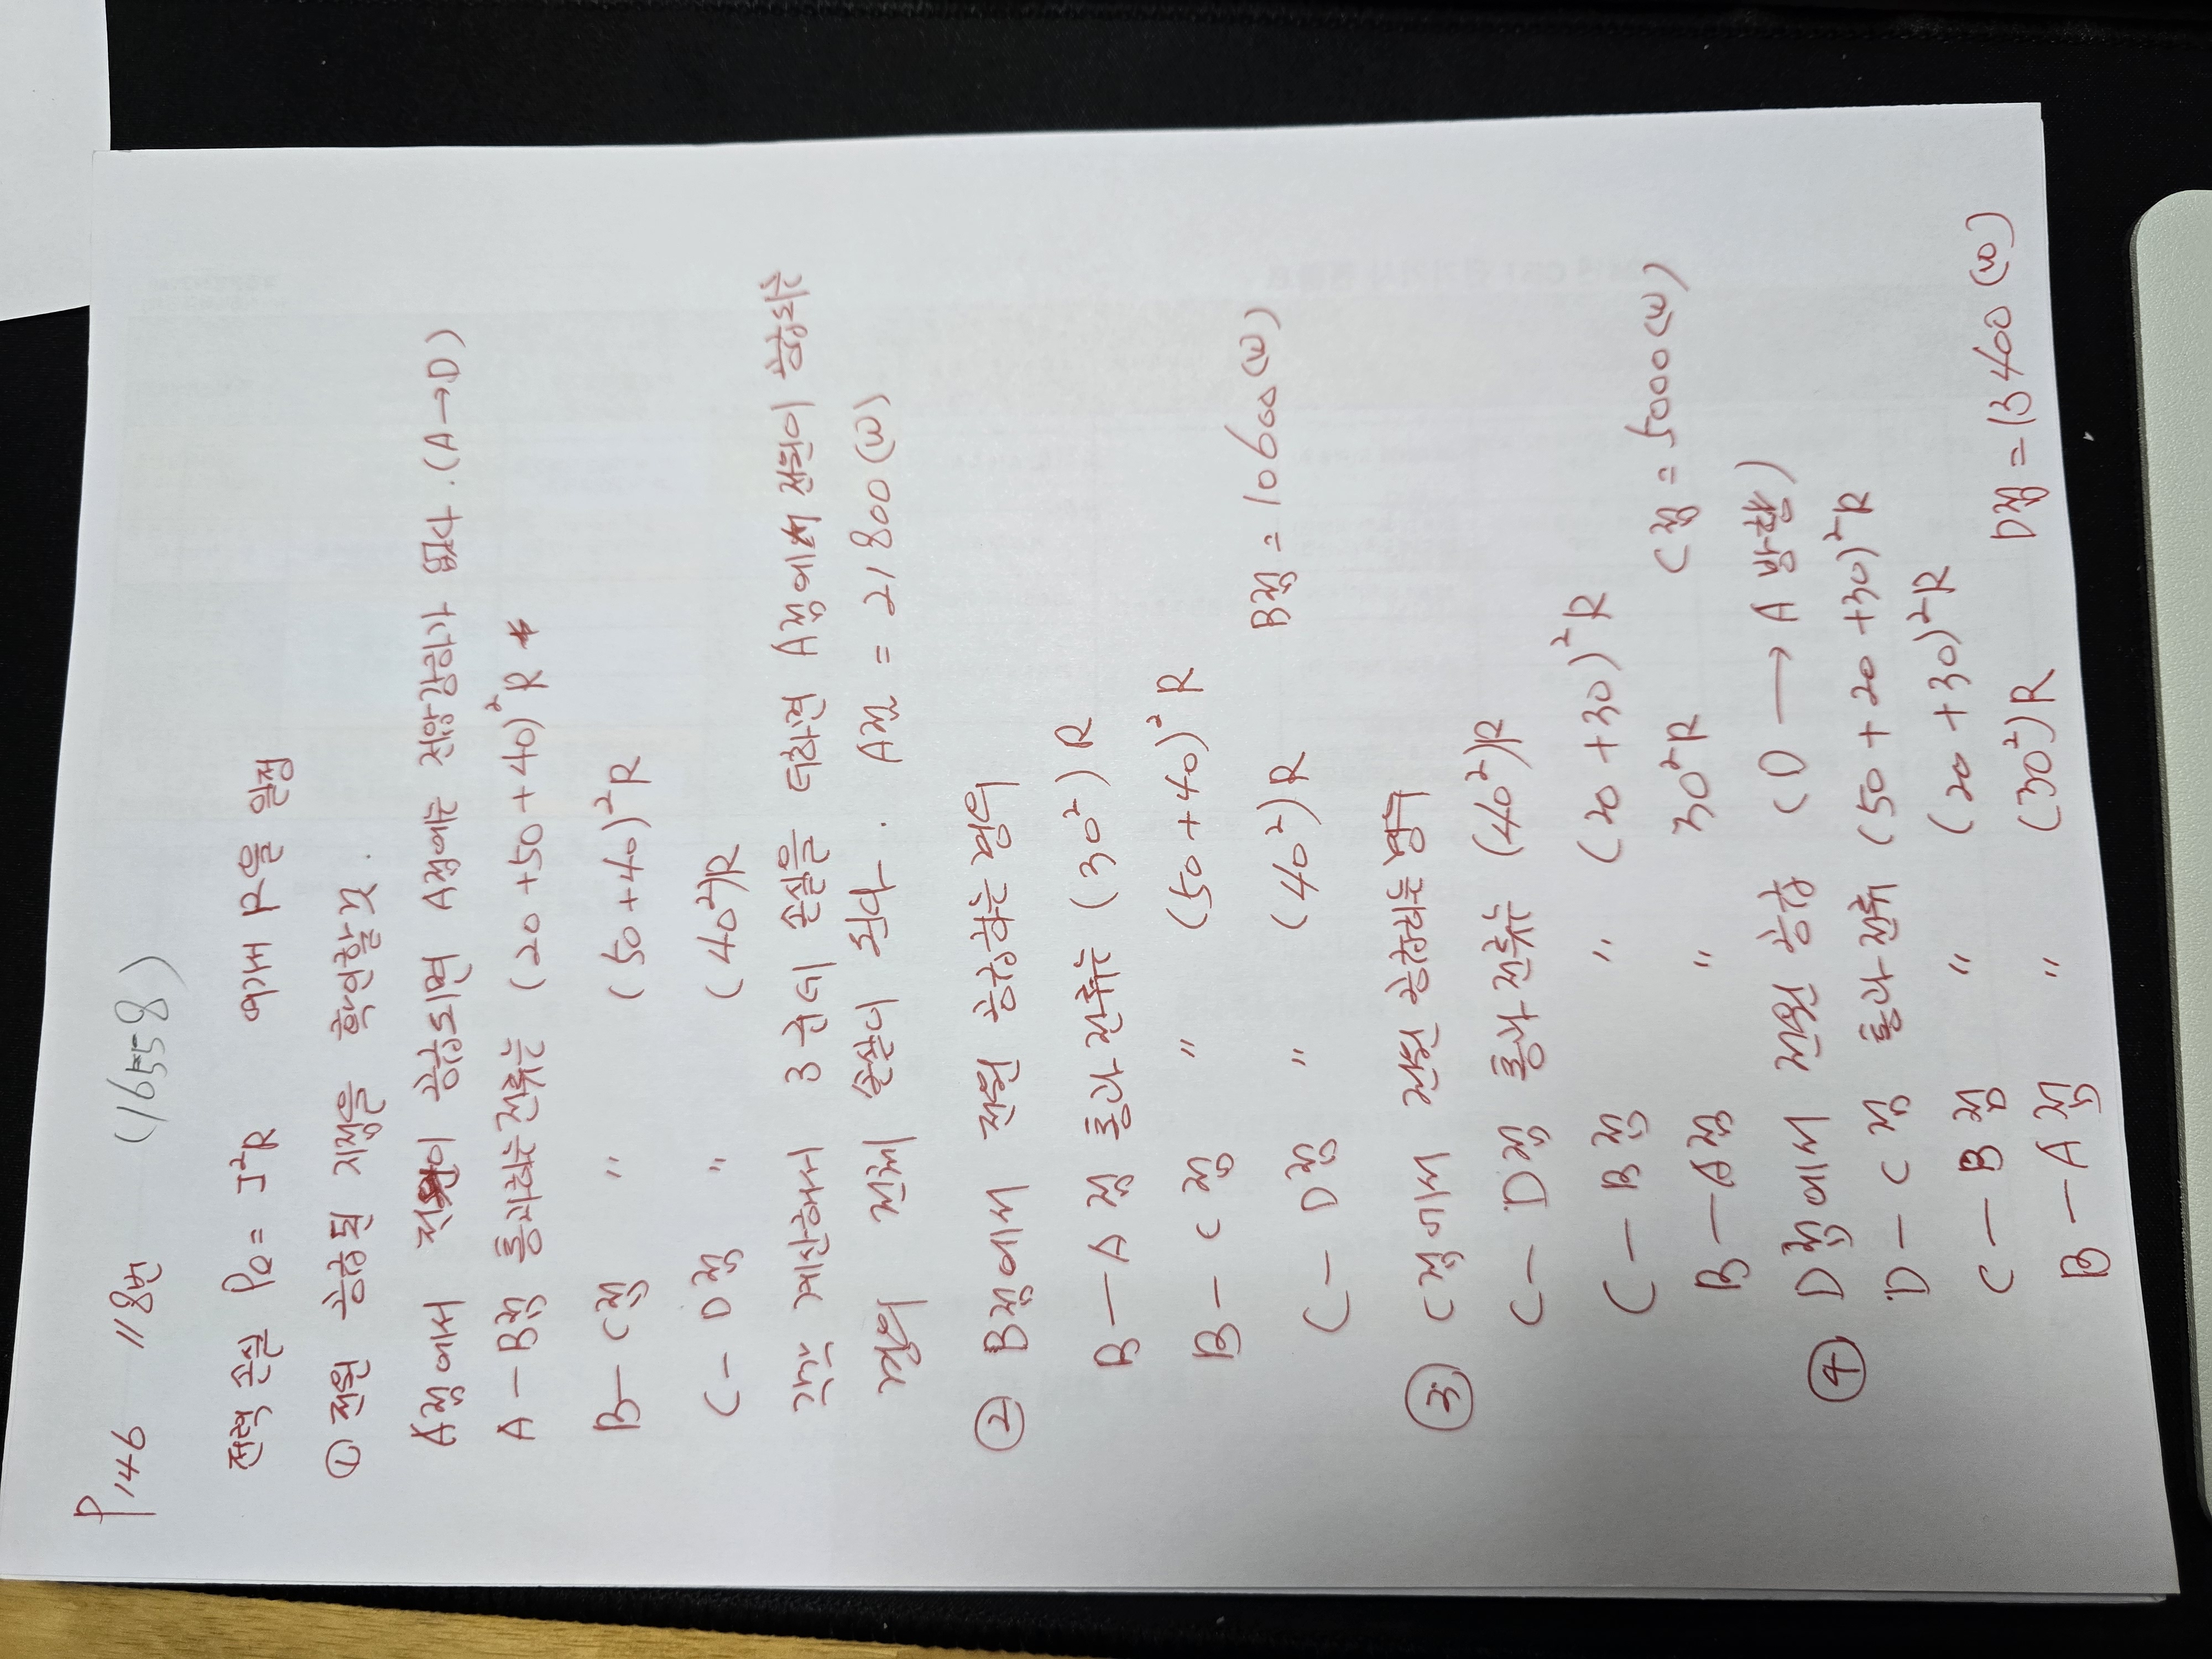 P,146 118번 (16558)
전력손실 Pℓ = I²R 여기서 R을 일정
① 전원 공급된 지점을 확인할 것.
A점에서 전원이 공급되면 A점에는 전압강하가 없다. (A→D)
A-B점 통과하는 전류는 (20+50+40)²R
B-C점 〃 (50+40)²R
C-D점 〃 (40²)R
각각 계산해서 3군데 손실을 더하면 A점에서 전원이 공급되는
경우 전체 손실이 된다. A점 = 21800(W)
② B점에서 전원 공급하는 경우
B-A점 통과전류는 (30²)R
B-C점 〃 (50+40)²R
C-D점 〃 (40²)R B점 = 10600(W)
③ C점에서 전원 공급하는 경우
C-D점 통과전류는 (40²)R
C-B점 〃 (20+30)²R
B-A점 〃 30²R C점 = 5000(W)
④ D점에서 전원 공급 (D→A 방향)
D-C점 통과전류 (50+20+30)²R
C-B점 〃 (20+30)²R
B-A점 〃 (30²)R D점=13400(W)